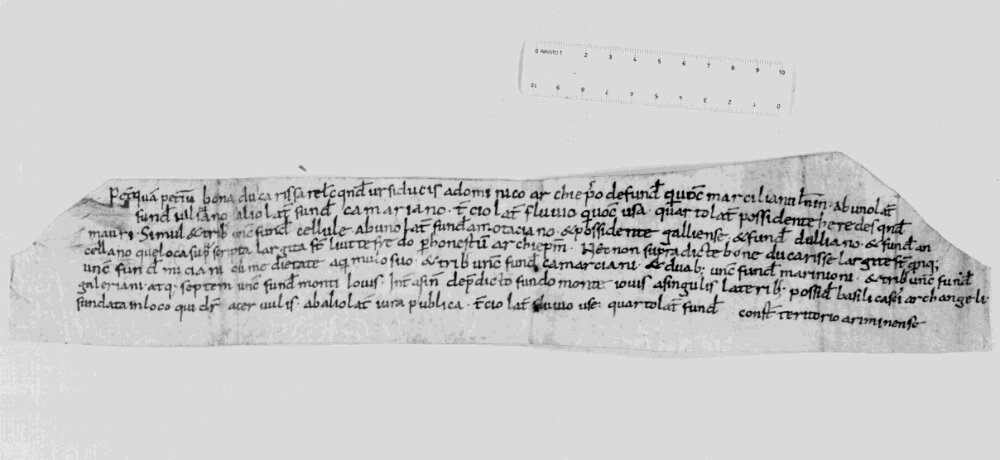 0 ARISTO 1 2 3 4 5 6 7 8 9 10
petiu bona ducarissa rel qnd ursiducis adominico archiepo defund marciliani abunolat
fund aliolat fund camariano. tcio lat fluvio usa. quartolat possidente heredes qnd
mauri. Simul & trib unc fund cellule. abuno lat fund amotaciano. & possidente galliense. & fund dulliano. & fund an
cellano queloca sup scripta largita honestu archiepm. Necnon supradicte bone ducarisse largite st
unc fund miciani cu medietate aq molo suo. & trib unc fund camarciani. & duab; unc fund marinioni. & trib unc fund
galeriani atq. septem unc fund monti Iovis. dicto fundo monte iovis asingulis laterib; possid basilica sci archangeli
fundata inloco qui dr acervulis. abaliolat iura publica. tcio lat fluvio use. quartolat fund const territorio ariminense